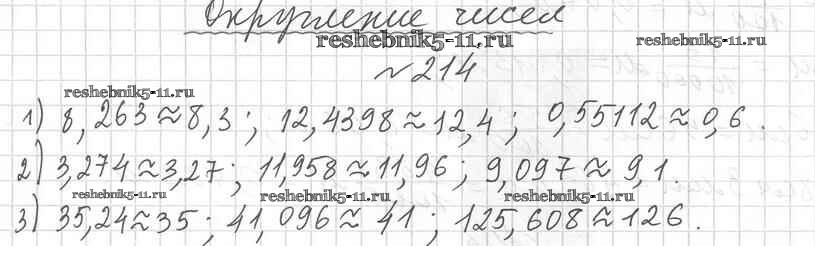 Округление чисел
reshebnik5-11.ru
reshebnik5-11.ru
№ 214
reshebnik5-11.ru
1) 8,263≈8,3; 12,4398≈12,4; 0,55112≈0,6.
2) 3,274≈3,27; 11,958≈11,96; 9,097≈9,1.
reshebnik5-11.ru
reshebnik5-11.ru
reshebnik5-11.ru
3) 35,24≈35; 41,096≈41; 125,608≈126.